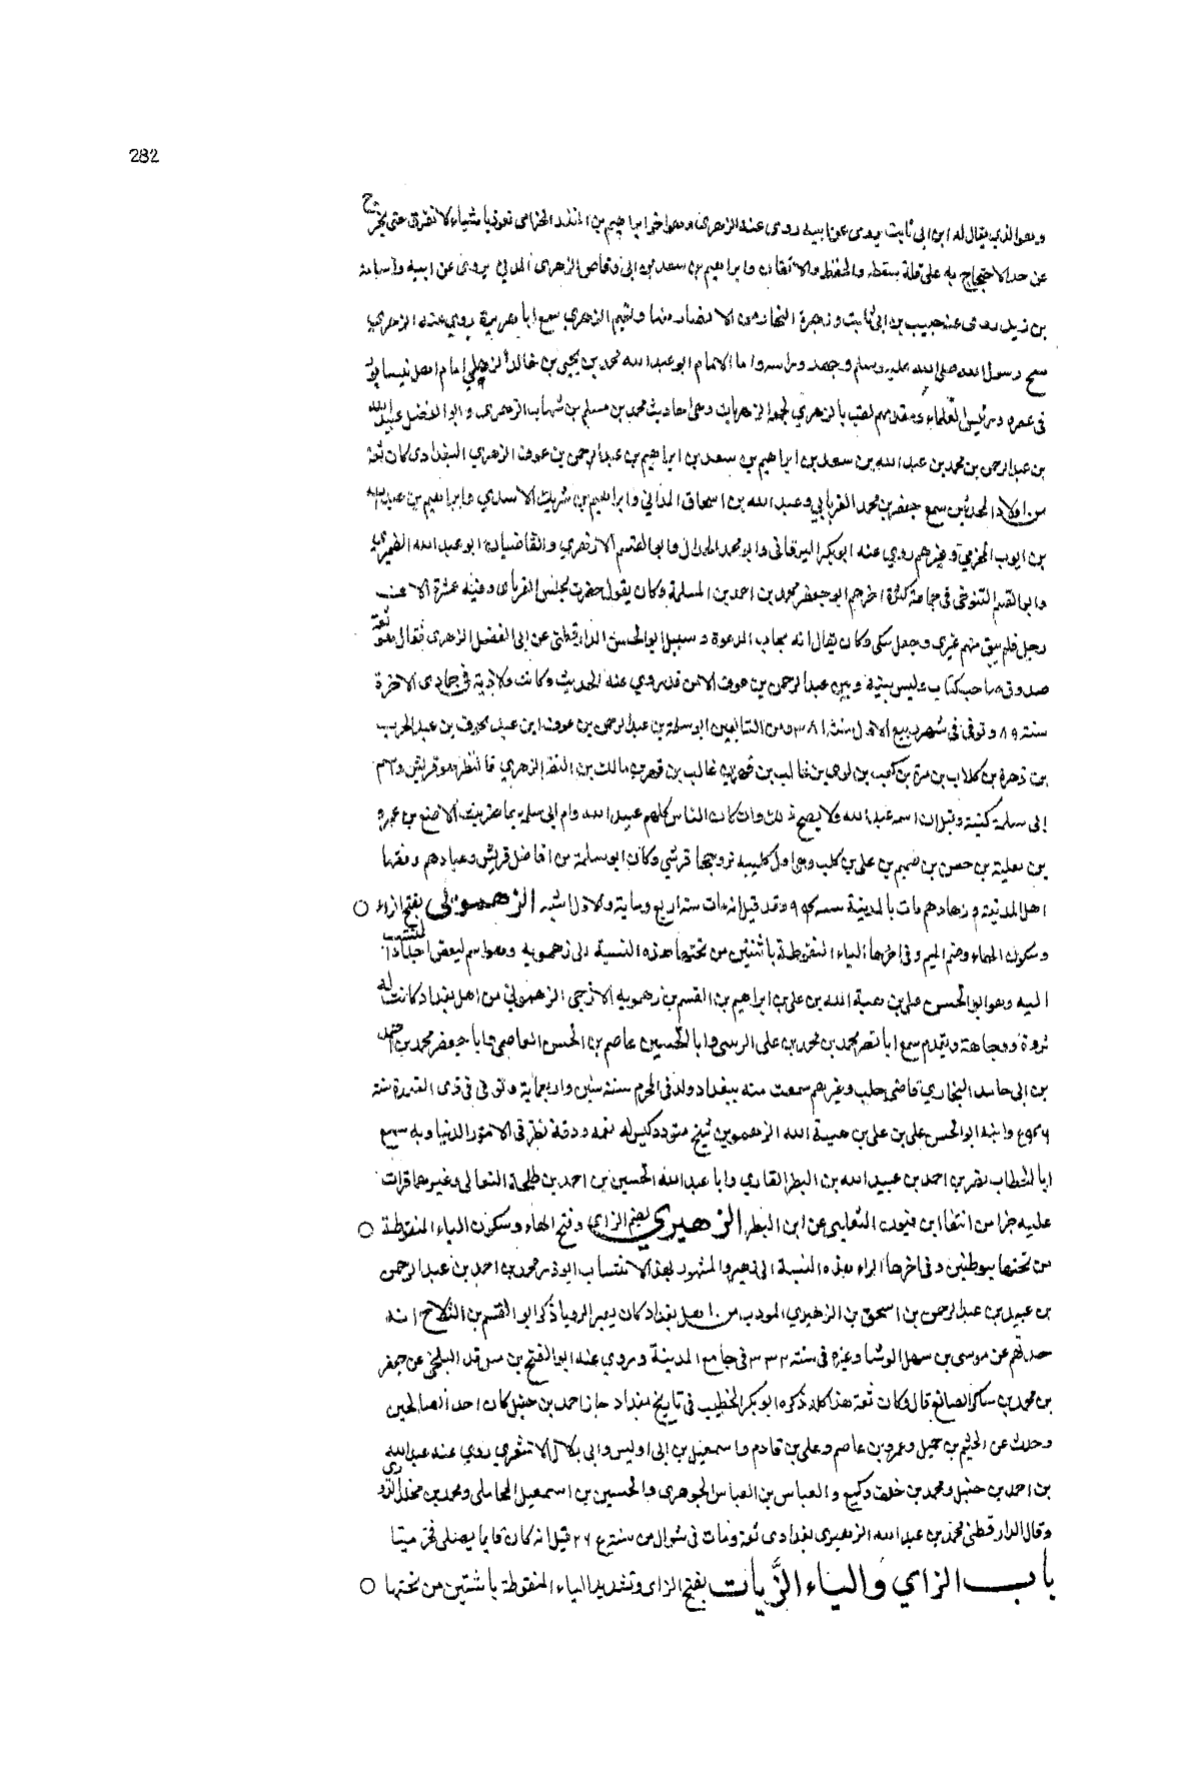 282
وهو الذي يقال له ابن ابى ثابت يروى عن ابيه روى عنه الزهرى وهو اخو ابراهيم بن المنذر الحزامى تفرد باشياء لا تعرف حتى خرج
عن حد الاحتجاج به على قلة تيقظه والحفظ والاتقان وابراهيم بن سعد بن ابى وقاص الزهرى المدني يروى عن ابيه واسامة
بن زيد روى عنه حبيب بن ابى ثابت وزهرة النجار من الانصار منها وتميم الزهري سمع ابا هريرة روي عنه الزهري
سمع رسول الله صلى الله عليه وسلم وجهد واما الامام ابو عبد الله محمد بن يحيى بن خالد الذهلي امام اهل نيسابور
فى عصره ورئيس العلماء ومقدمهم لقب بالزهري لجمعه الزهريات وهى احاديث محمد بن مسلم بن شهاب الزهرى وابو الفضل عبيد الله
بن عبد الرحمن بن محمد بن عبد الله بن سعد بن ابراهيم بن سعد بن ابراهيم بن عبد الرحمن بن عوف الزهري البغدادى كان ثقة
من اولاد المحدثين سمع جعفر بن محمد الفريابي وعبد الله بن اسحاق المدائني وابراهيم بن شريك الاسدي وابراهيم بن عبد الله
بن ايوب المخرمي وغيرهم روي عنه ابو بكر البرقانى وابو محمد الخلال وابو القسم الازهري والقاضيان ابو عبد الله الصيمري
وابو القسم التنوخى فى جماعة كثيرة اخرهم ابو جعفر محمد بن احمد بن المسلمة وكان يقول حضرت مجلس الفريابى وفيه عشرة الاف
رجل فلم يبق منهم غيري وجعل يبكى وكان يقال انه مجاب الدعوة وسئل ابو الحسن الدارقطنى عن ابى الفضل الزهرى فقال هو ثقة
صدوق صاحب كتاب وليس بينه وبين عبد الرحمن بن عوف الا من قد روي عنه الحديث وكانت ولادته فى جمادى الاخرة
سنة وتوفى فى شهر ربيع الاول سنة ٣٨١ ومن التابعين ابو سلمة بن عبد الرحمن بن عوف ابن عبد عوف بن عبد الحرب
بن زهرة بن كلاب بن مرة بن كعب بن لوى بن غالب بن فهر بن مالك بن النضر الزهري قال هو قريش
ابى سلمة كنيته وقيل ان اسمه عبد الله ولا يصح ذلك وان كان الناس كلهم عبيد الله وام ابى سلمة تماضر بنت الاصبغ بن عمرو
بن ثعلبة بن حصن بن ضمضم بن على بن كلب وهى اول كلبية تزوجها قرشي وكان ابو سلمة من افاضل قريش وعبادهم وفقها
اهل المدينة وزهادهم مات بالمدينة سنة وقد قيل انه مات سنة اربع ومايه والاول اشبه الزهموئى بفتح الزاء
وسكون الهاء وضم الميم وفى اخرها الياء المنقوطة باثنتين من تحتها هذه النسبة الى زهمويه وهو اسم لبعض اجداد المنتسب
اليه وهو ابو الحسن على بن هبة الله بن على بن ابراهيم بن القسم بن زهمويه الازجى الزهموئى من اهل بغداد كانت له
ثروة ووجاهة وتقدم سمع ابا نصر محمد بن محمد بن على الزينبى وابا الحسين عاصم بن الحسن العاصمى وابا جعفر محمد بن احمد
بن ابى حامد البخاري قاضى حلب وغيرهم سمعت منه ببغداد ولد فى المحرم سنة ستين واربعماية وتوفى فى ذى القعدة سنة
وابنه ابو الحسن على بن على بن هبة الله الزهموى شيخ متودد كيس له نعمه ودقة نظر فى الامور الدنياوية سمع
ابا الخطاب نصر بن احمد بن عبيد الله بن البطر القاري وابا عبد الله الحسين بن احمد بن طلحة النعالى وغيرهما قرات
عليه جزا من انتقا ابن النعالى عن ابن البطر الزهيري بضم الزاي وفتح الهاء وسكون الياء المنقوطة
من تحتها بنوطتين وفى اخرها الراء هذه النسبة الى زهير والمشهور بهذا الانتساب ابو ذر محمد بن احمد بن عبد الرحمن
بن عبيد بن عبد الرحمن بن اسحق بن الزهيري المودب من اهل بغداد كان يعبر الرويا ذكر ابو القسم بن الثلاج انه
حدثهم عن موسى بن سهل الوشا وغيره فى سنة ٣٣٢ فى جامع المدينة وروي عنه ابو الفتح بن مسرور البلخى عن جعفر
بن محمد بن شاكر الصائغ قال وكان ثقة هذا كله ذكره ابو بكر الخطيب فى تاريخ بغداد جار احمد بن حنبل كان احد الصالحين
وحدث عن الهيثم بن جميل وعمرو بن عاصم وعلى بن قادم واسمعيل بن ابى اويس وابى بلال الاشعري روي عنه عبد الله
بن احمد بن حنبل ومحمد بن خلف وكيع والعباس بن العباس الجوهرى والحسين بن اسمعيل المحاملى ومحمد بن مخلد الدوري
وقال الدارقطنى محمد بن عبد الله الزهيرى بغدادى ثقة ومات فى شوال من سنة قيل انه كان قايما يصلى فخر ميتا
باب الزاي والياء الزيات بفتح الزاى وتشديد الياء المنقوطة باثنتين من تحتها